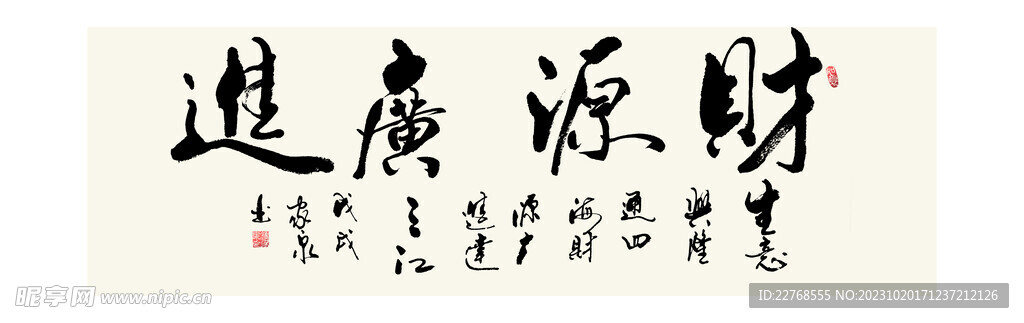 財源廣進
生意
興隆
通四
海財
源广
進達
三江
戊戌
家泉
书
昵享网 www.nipic.cn
ID:22768555 NO:20231020171237212126